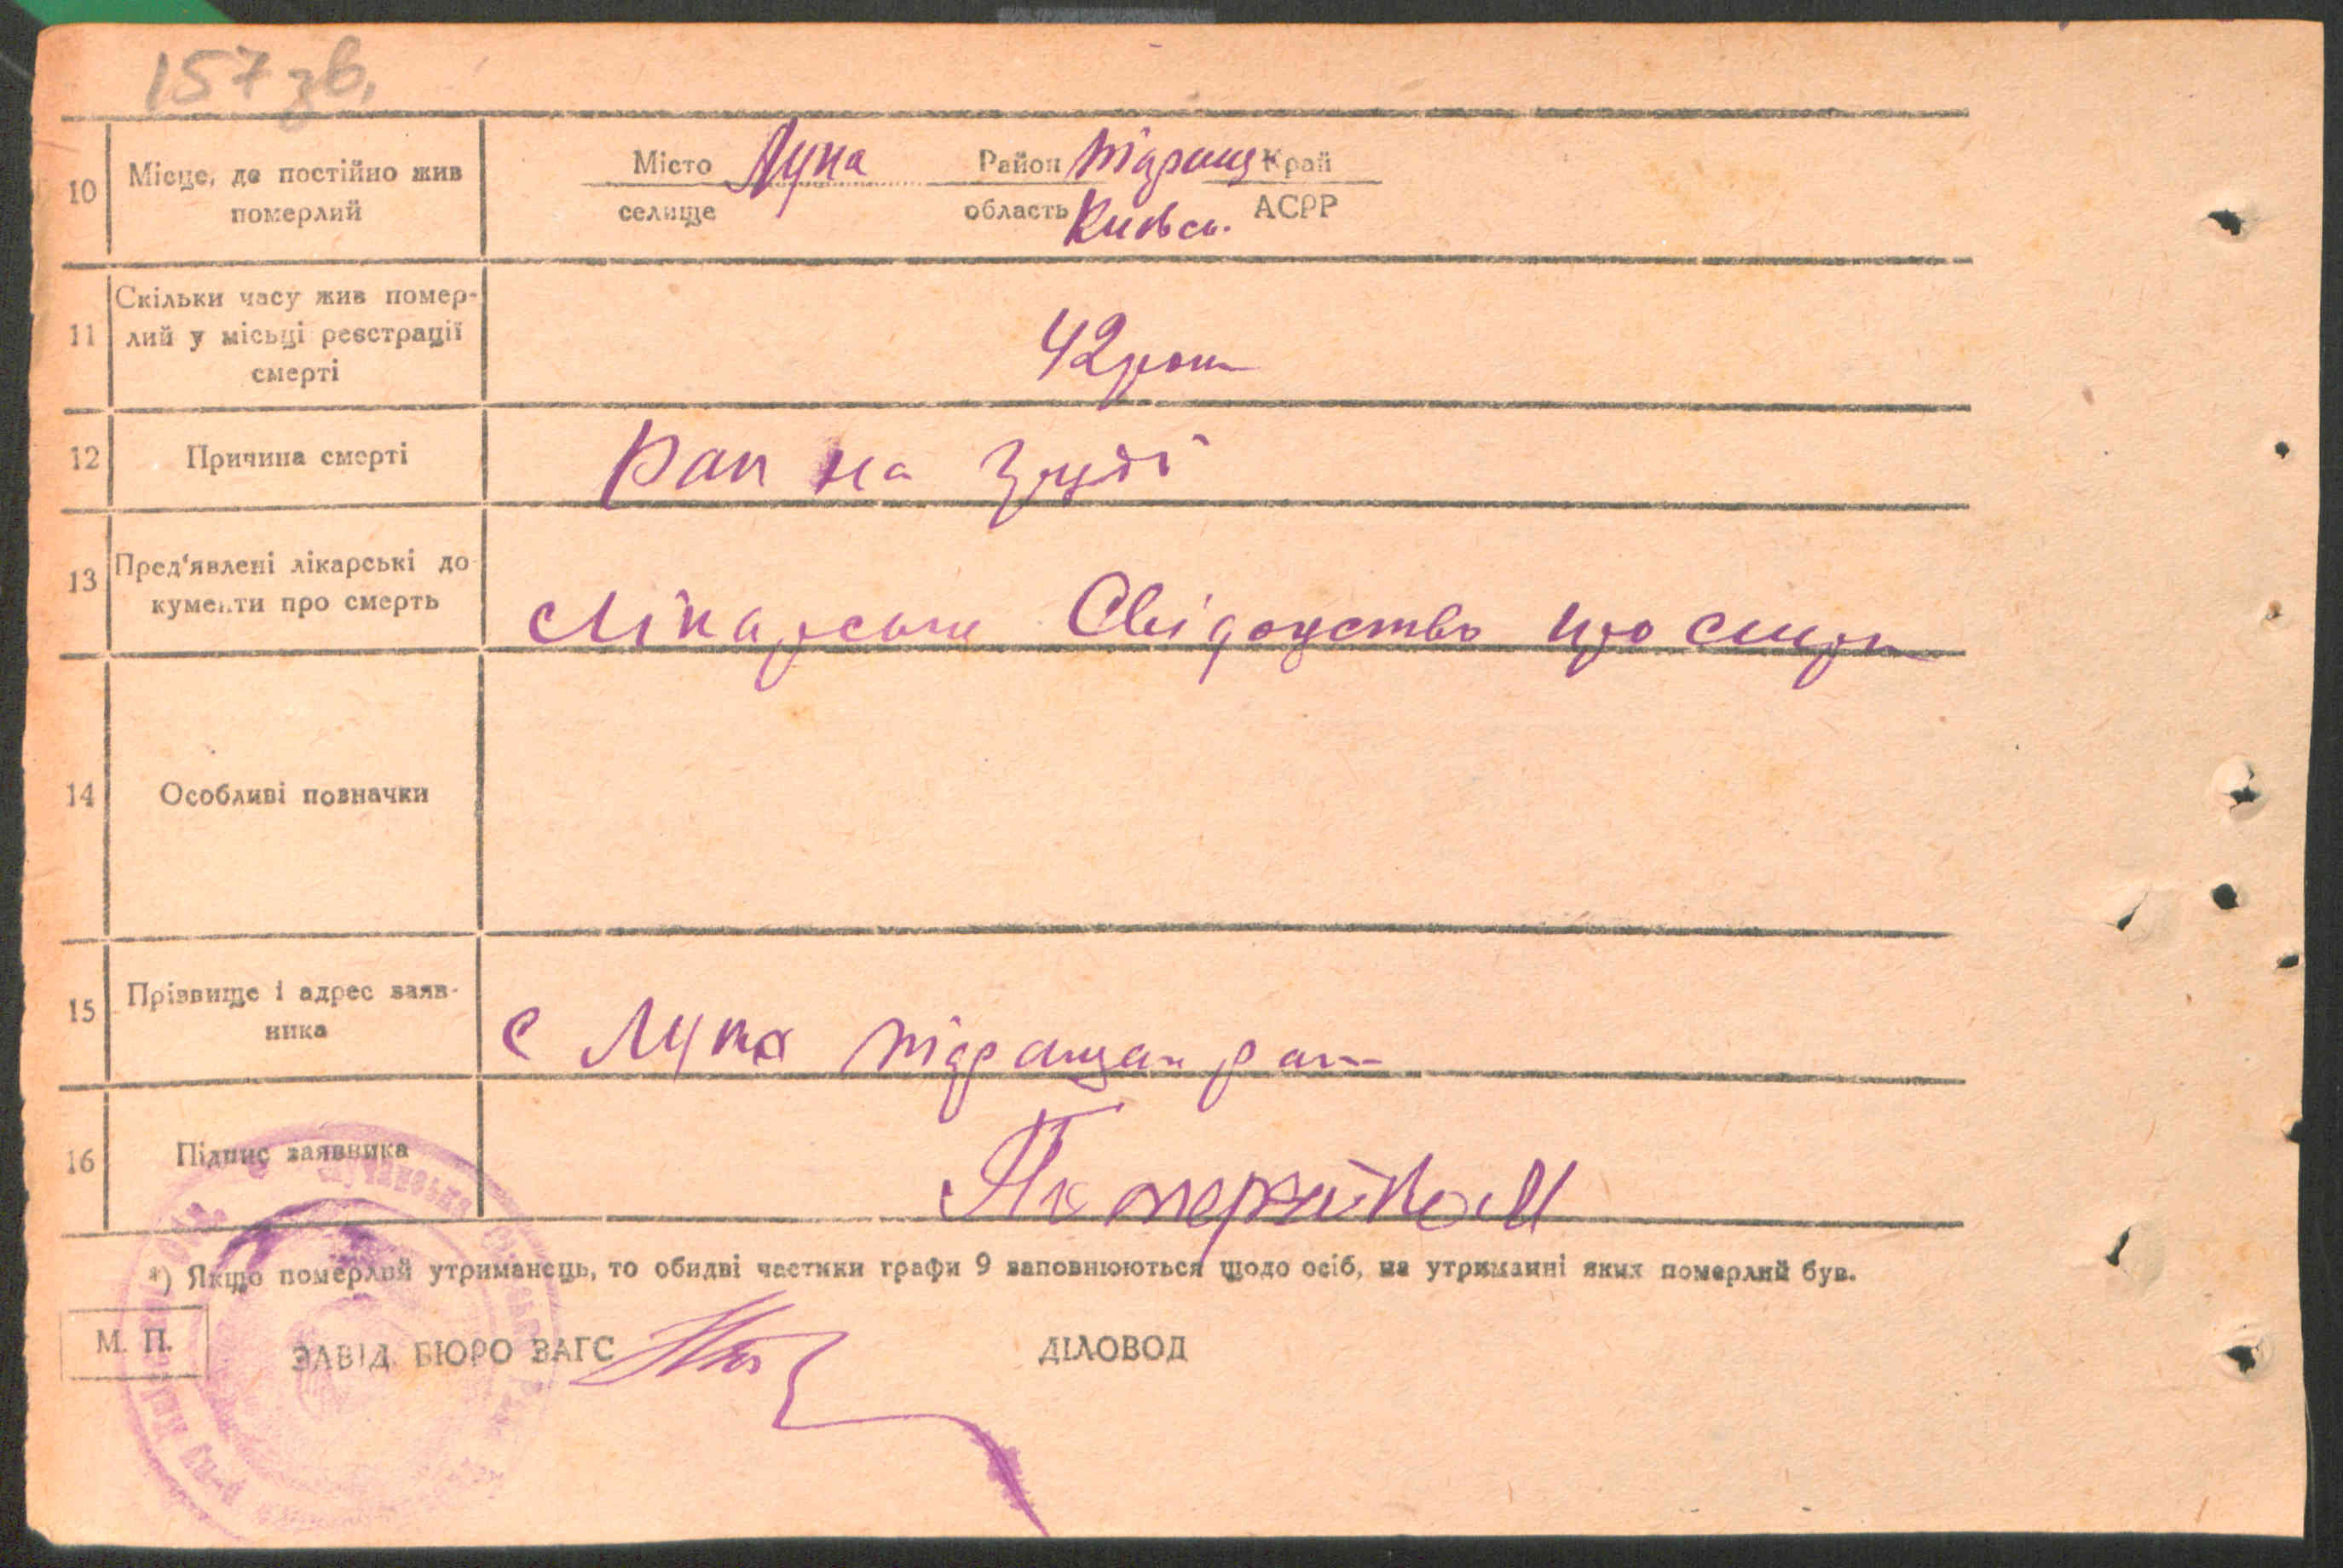 157 зв.
10 Місце, де постійно жив померлий
Місто Лука Район Підращ Край
селище область Київсь. АСРР
11 Скільки часу жив помер-
лий у місьці реєстрації
смерті
42 рок
12 Причина смерті Рак на груді
13 Пред'явлені лікарські до-
кументи про смерть
Лікарське Свідоцтво про смерт
14 Особливі позначки
15 Прізвище і адрес заяв-
ника
с Лука Підращан рай
16 Підпис заявника
*) Якщо померлий утриманець, то обидві частики графи 9 заповнюються щодо осіб, на утриманні яких померлий був.
М. П.
ЗАВІД. БЮРО ЗАГС ДІЛОВОД